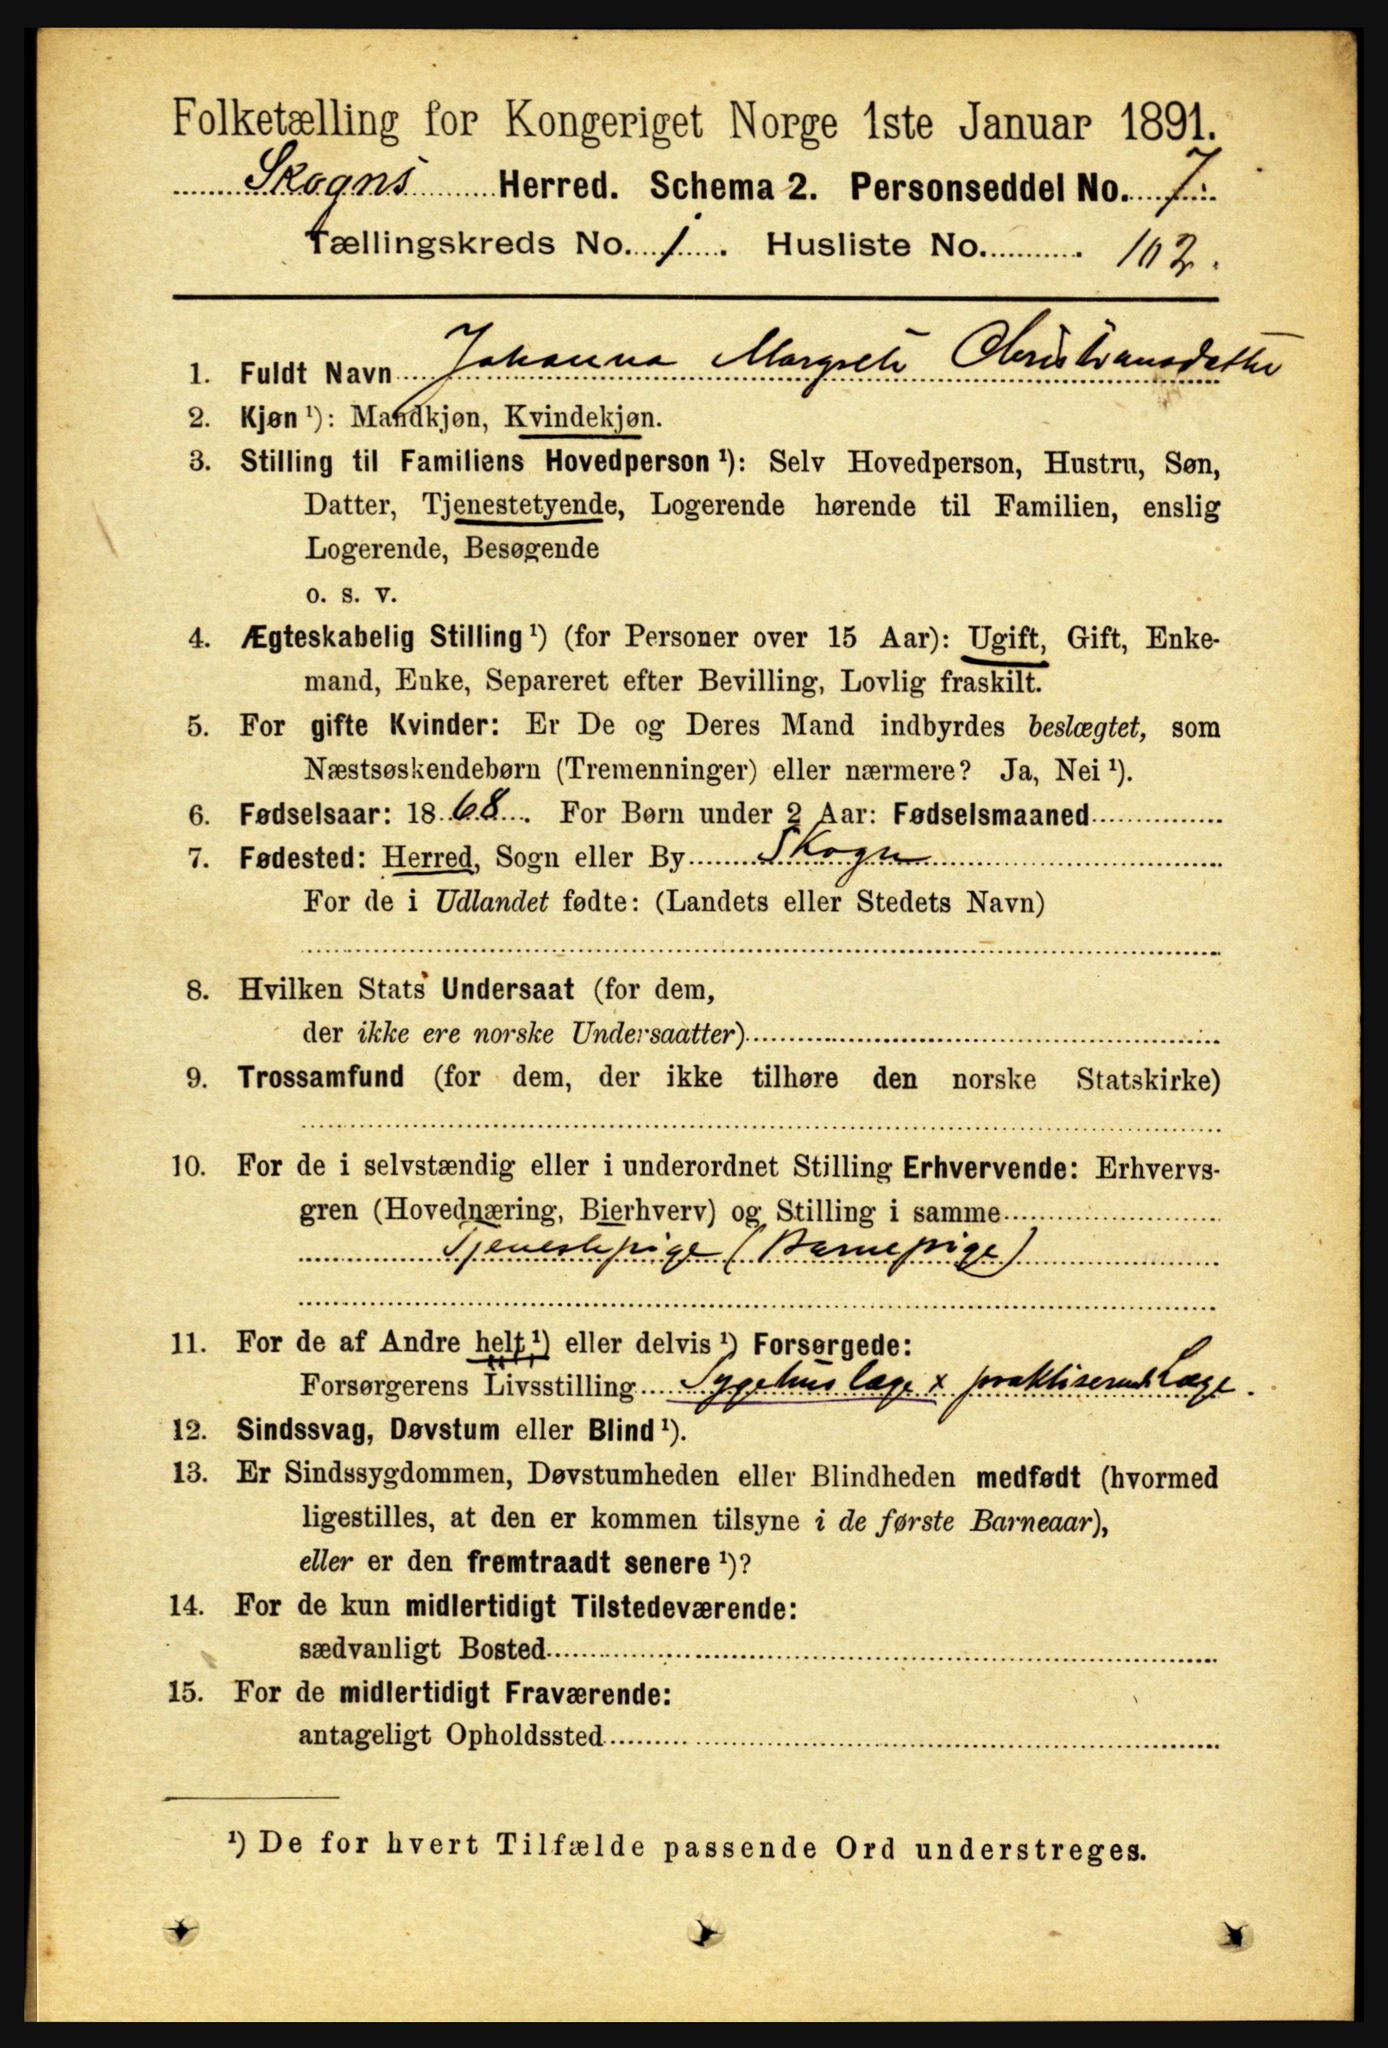 Folketælling for Kongeriget Norge 1ste Januar 1891.
Skogns Herred. Schema 2. Personseddel No. 7.
Tællingskreds No. 1. Husliste No. 102.
1. Fuldt Navn Johanna Margrete Christiansdatter
2. Kjøn ¹): Mandkjøn, Kvindekjøn.
3. Stilling til Familiens Hovedperson ¹): Selv Hovedperson, Hustru, Søn,
Datter, Tjenestetyende, Logerende hørende til Familien, enslig
Logerende, Besøgende
o. s. v.
4. Ægteskabelig Stilling ¹) (for Personer over 15 Aar): Ugift, Gift, Enke-
mand, Enke, Separeret efter Bevilling, Lovlig fraskilt.
5. For gifte Kvinder: Er De og Deres Mand indbyrdes beslægtet, som
Næstsøskendebørn (Tremenninger) eller nærmere? Ja, Nei ¹).
6. Fødselsaar: 1868. For Børn under 2 Aar: Fødselsmaaned
7. Fødested: Herred, Sogn eller By Skogn
For de i Udlandet fødte: (Landets eller Stedets Navn)
8. Hvilken Stats Undersaat (for dem,
der ikke ere norske Undersaatter)
9. Trossamfund (for dem, der ikke tilhøre den norske Statskirke)
10. For de i selvstændig eller i underordnet Stilling Erhvervende: Erhvervs-
gren (Hovednæring, Bierhverv) og Stilling i samme
Tjenestepige (Barnepige)
11. For de af Andre helt ¹) eller delvis ¹) Forsørgede:
Forsørgerens Livsstilling Sygehuslæge x praktiserende Læge.
12. Sindssvag, Døvstum eller Blind ¹).
13. Er Sindssygdommen, Døvstumheden eller Blindheden medfødt (hvormed
ligestilles, at den er kommen tilsyne i de første Barneaar),
eller er den fremtraadt senere ¹)?
14. For de kun midlertidigt Tilstedeværende:
sædvanligt Bosted
15. For de midlertidigt Fraværende:
antageligt Opholdssted
¹) De for hvert Tilfælde passende Ord understreges.